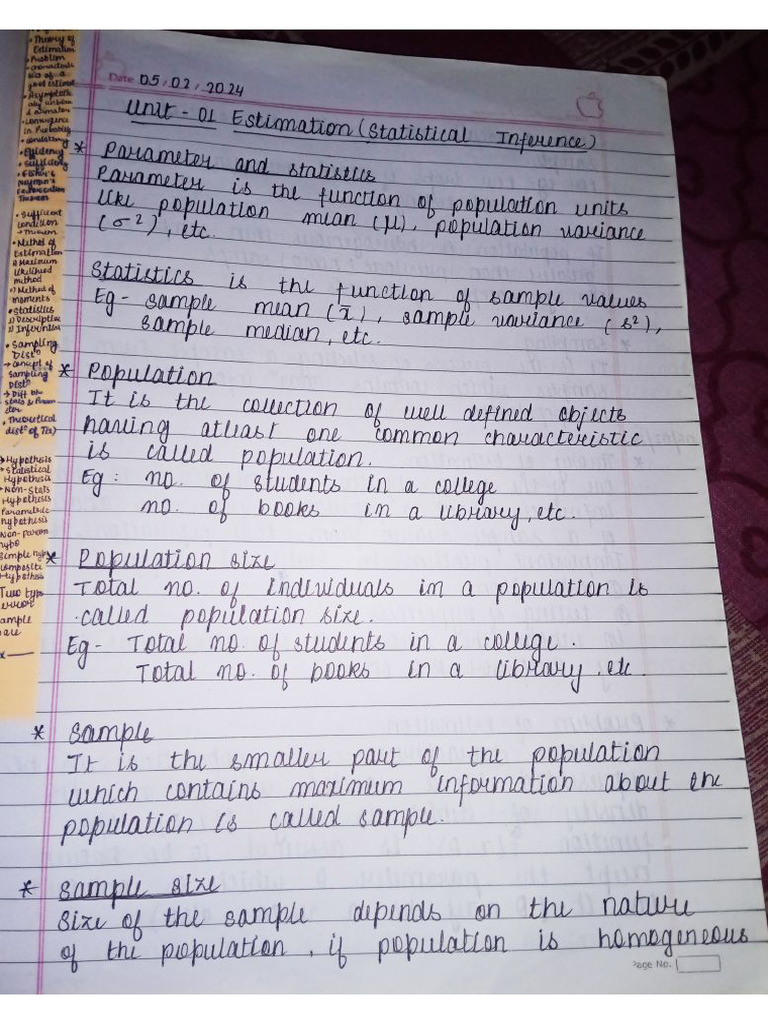 Theory of
Estimation
Problem
good estimator
in Probability
consistency
Efficiency
Sufficiency
Theorem
Sufficient
condition
→ Theorem
Method of
Estimation
Maximum
likelihood
method
Method of
moments
Statistics
Descriptive
Inferential
Sampling
Distⁿ
→ concept of
Sampling
Distⁿ
→ Diff bt
Theoretical
Hypothesis
Statistical
Hypothesis
Non-Stats
Hypothesis
Parametric
hypothesis
Non-Param
hypo
Simple hypo
composite
Hypothesis
Two type
error
Date 05/02/2024
Unit - 01 Estimation (Statistical Inference)
* Parameter and statistics
Parameter is the function of population units
like population mean (μ), population variance
(σ²), etc.
Statistics is the function of sample values
Eg - sample mean (x̄), sample variance (s²),
sample median, etc.
* Population
It is the collection of well defined objects
having atleast one common characteristic
is called population.
Eg : no. of students in a college
no. of books in a library, etc.
* Population size
Total no. of individuals in a population is
called population size.
Eg - Total no. of students in a college.
Total no. of books in a library, etc.
* Sample
It is the smaller part of the population
which contains maximum information about the
population is called sample.
* Sample size
Size of the sample depends on the nature
of the population, if population is homogeneous
Page No.